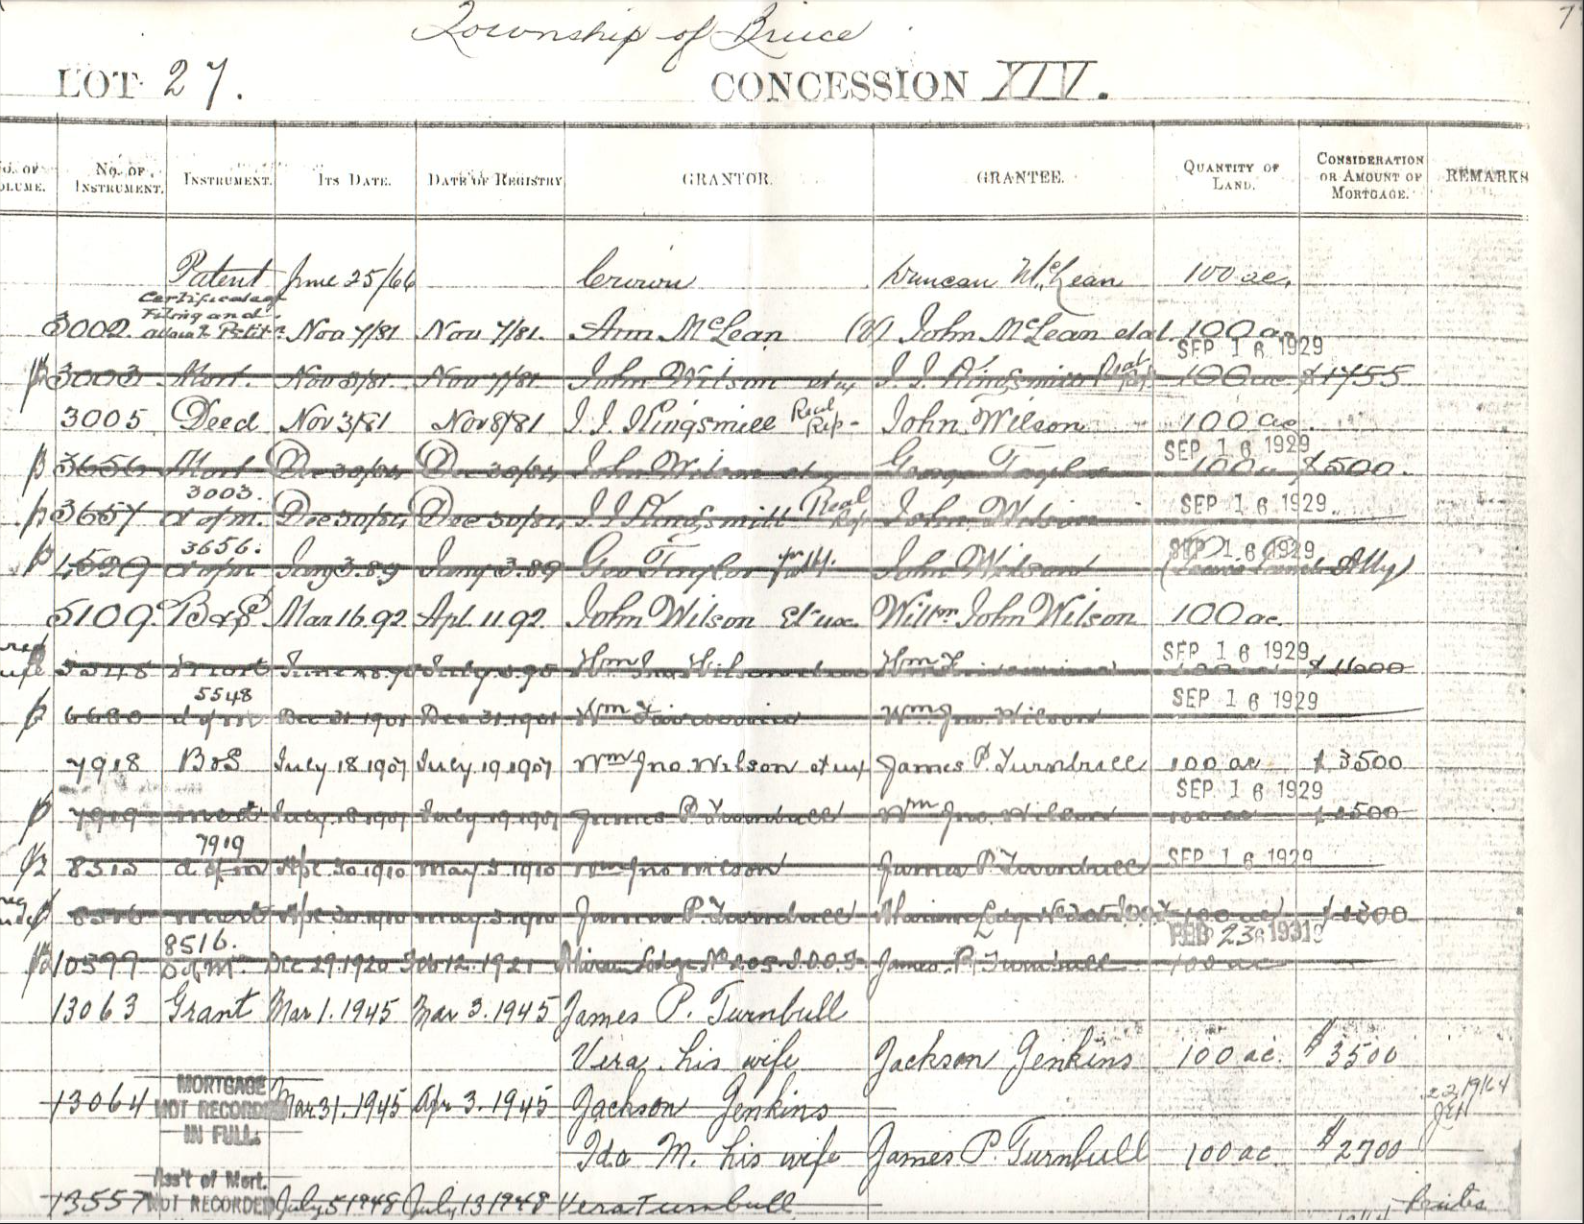 Township of Bruce
LOT 27. CONCESSION XIV.
NO. OF VOLUME. NO. OF INSTRUMENT. INSTRUMENT. ITS DATE. DATE OF REGISTRY GRANTOR. GRANTEE. QUANTITY OF LAND. CONSIDERATION OR AMOUNT OF MORTGAGE. REMARKS
Patent June 25/66 Crown Duncan McLean 100 ac.
Certificate of
Filing and
3002 Nov 7/81 Nov 7/81. Ann McLean John McLean et al. 100 ac
SEP 16 1929
3003 Mort. Nov 3/81. Nov 7/81. John Wilson et ux J. J. Kingsmill Real Rep 100 ac $1755
3005 Deed Nov 3/81 Nov 8/81 J. J. Kingsmill Real Rep- John Wilson 100 ac.
SEP 16 1929
3656 Mort Dec 30/84 Dec 30/84 John Wilson et ux George Taylor 100 ac $500.
3003.
3657 d of m. Dec 30/84 Dec 30/84 J. J. Kingsmill Real Rep John Wilson SEP 16 1929
3656.
4529 d of m Jany 3.89 Jany 3.89 Geo Taylor John Wilson SEP 16 1929
5109 B&S Mar 16.92 Apl. 11.92. John Wilson et ux Willm John Wilson 100 ac.
SEP 16 1929
5548 Mort Wm Jno Wilson
5548
6680 d of m Dec 31.1901 Dec 31.1901 Wm Wm Jno. Wilson SEP 16 1929
7918 B&S July 18.1907 July 19.1907 Wm Jno. Wilson et ux James P. Turnbull 100 ac $3500
SEP 16 1929
7919 mort July 18.1907 July 19.1907 James P. Turnbull Wm Jno. Wilson 100 ac
7919
8515 d of m Apl 30.1910 May 3.1910 Wm Jno Wilson James P. Turnbull SEP 16 1929
8516 mort Apl 30.1910 May 3.1910 James P. Turnbull Lodge No 205 I.O.O.F 100 ac $1300
8516. FEB 23 1931
10599 D of M. Dec 29.1920 Feb 12.1921 Lodge No 205 I.O.O.F. James P. Turnbull 100 ac
13063 Grant Mar 1.1945 Mar 3.1945 James P. Turnbull
Vera his wife Jackson Jenkins 100 ac. $3500
13064 MORTGAGE NOT RECORDED IN FULL. Mar 31.1945 Apr 3.1945 Jackson Jenkins
Ida M. his wife James P. Turnbull 100 ac $2700
13557 Ass't of Mort. NOT RECORDED July 5 1948 July 13 1948 Vera Turnbull